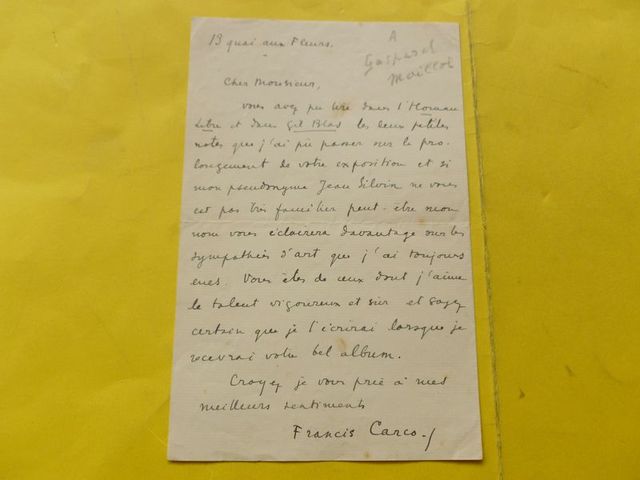 13 quai aux Fleurs.
A
Gaspard
Maillol
Cher Monsieur,
vous avez pu lire dans l'Homme
Libre et dans Gil Blas les deux petites
notes que j'ai pu passer sur le pro-
longement de votre exposition et si
mon pseudonyme Jean Silvin ne vous
est pas très familier peut-être mon
nom vous éclairera davantage sur les
sympathies d'art que j'ai toujours
eues. Vous êtes de ceux dont j'aime
le talent vigoureux et sûr et soyez
certain que je l'écrirai lorsque je
recevrai votre bel album.
Croyez je vous prie à mes
meilleurs sentiments
Francis Carco